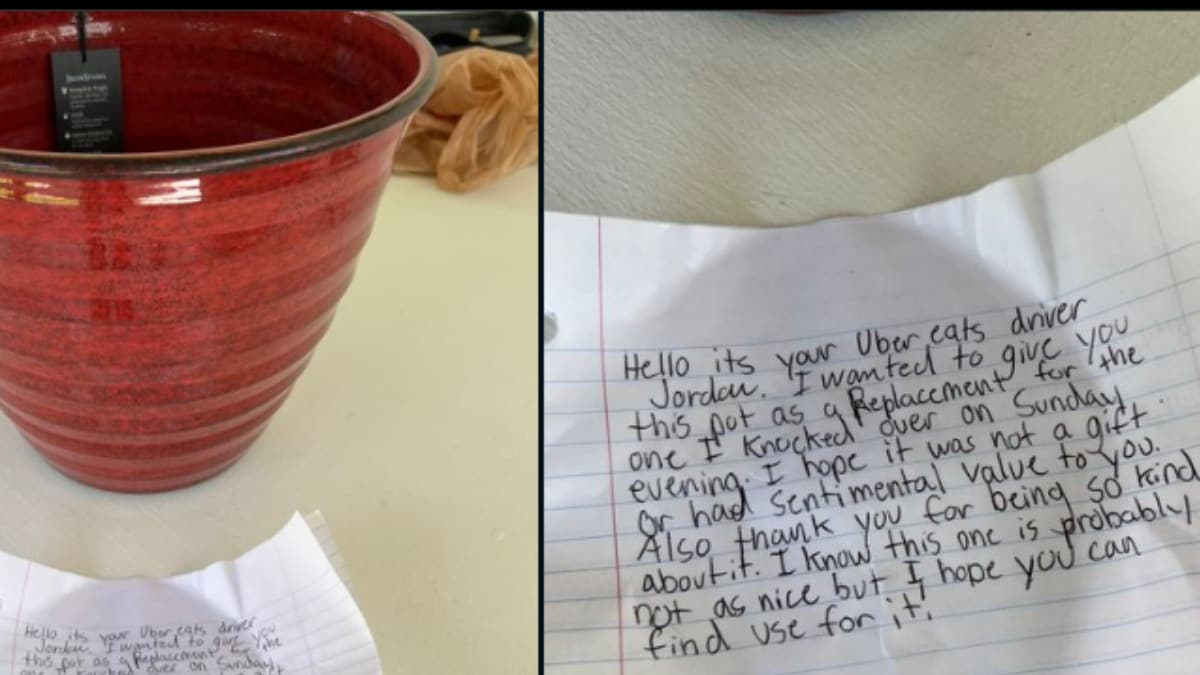 Hello its your Uber eats driver
Jordan. I wanted to give you
this pot as a Replacement for the
one I knocked over on Sunday
Hello its your Uber eats driver
Jordan. I wanted to give you
this pot as a Replacement for the
one I knocked over on Sunday
evening. I hope it was not a gift
or had sentimental value to you.
Also thank you for being so kind
about it. I know this one is probably
not as nice but I hope you can
find use for it!